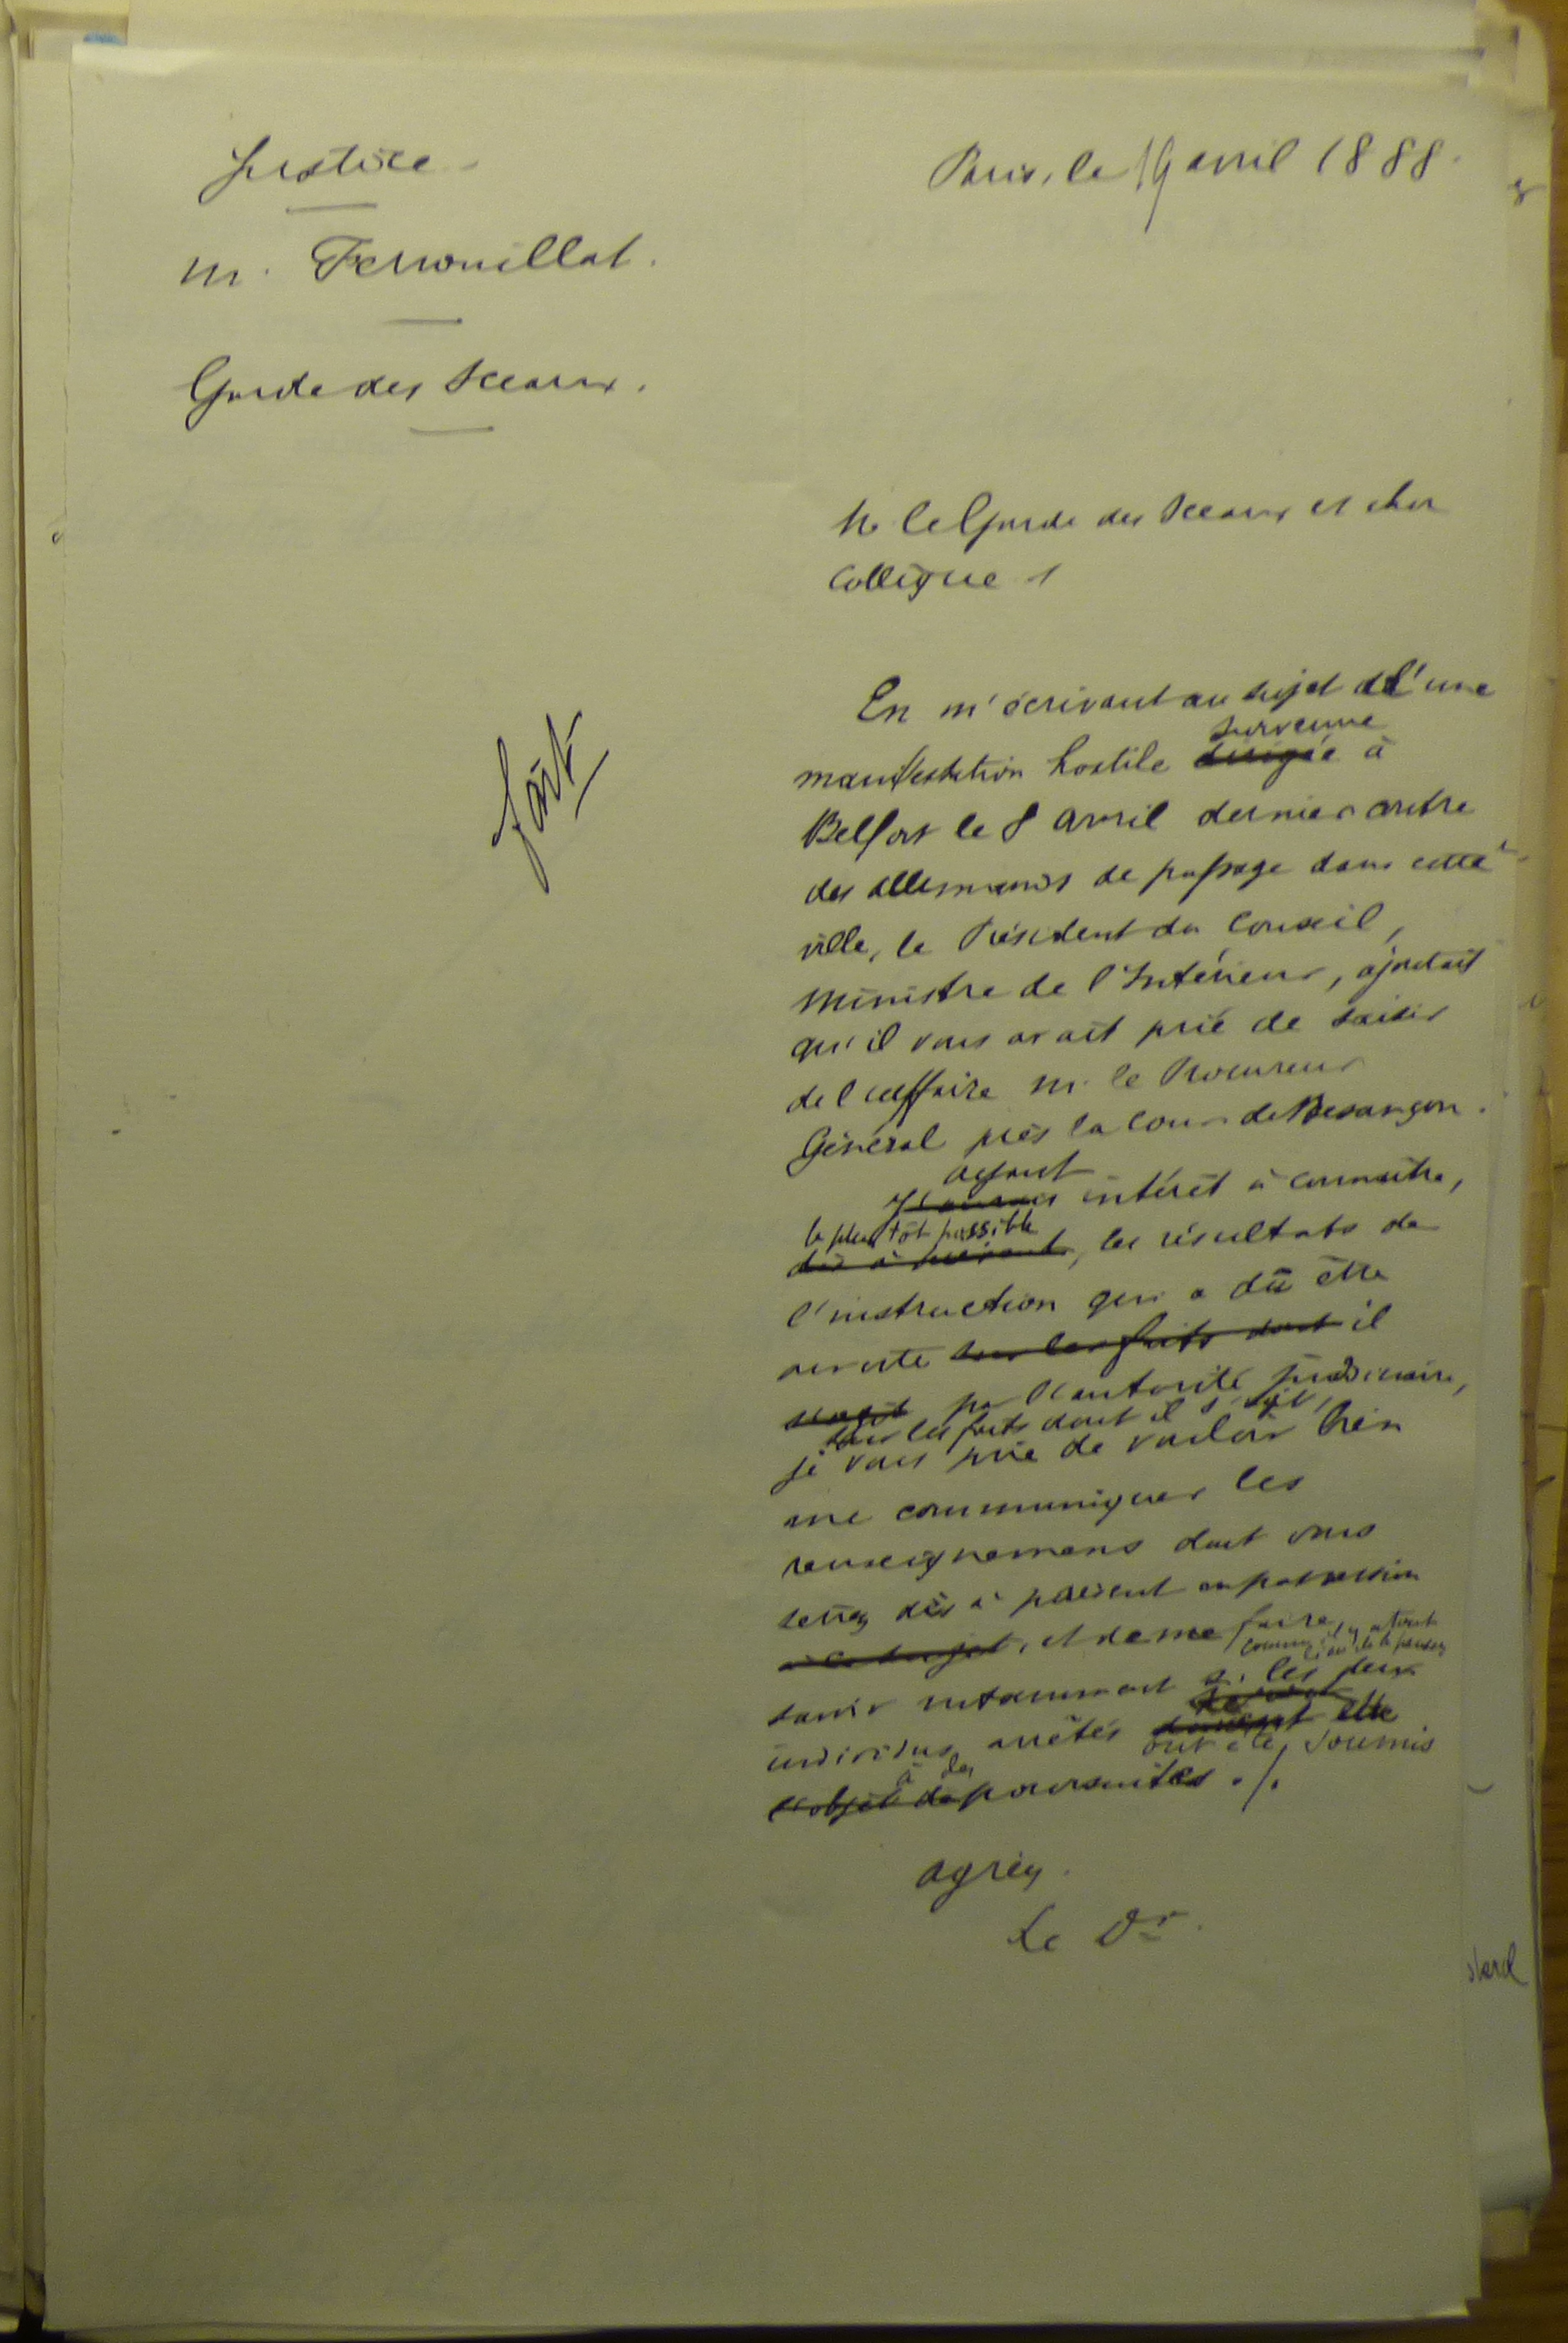 Justice
Paris, le 19 avril 1888.
M. Ferrouillat.
Garde des Sceaux.
fait
M. le Garde des Sceaux et cher
Collègue,
En m'écrivant au sujet d'une
survenue
manifestation hostile dirigée à
Belfort le 8 avril dernier contre
des allemands de passage dans cette
ville, le Président du Conseil,
Ministre de l'Intérieur, ajoutait
qu'il vous avait prié de saisir
de l'affaire M. le Procureur
Général près la Cour de Besançon.
ayant
J'aurais intérêt à connaître,
le plus tôt possible
dès à présent, les résultats de
l'instruction qui a dû être
ouverte sur les faits dont il
s'agit par l'autorité judiciaire,
sur les faits dont il s'agit,
je vous prie de vouloir bien
me communiquer les
renseignemens dont vous
seriez dès à présent en possession
à ce sujet, et de me faire
comme il y a tout
lieu de le penser
savoir notamment si les deux
individus arrêtés doivent être
ont été soumis
à des
l'objet de poursuites ./.
agréez.
Le Dr.